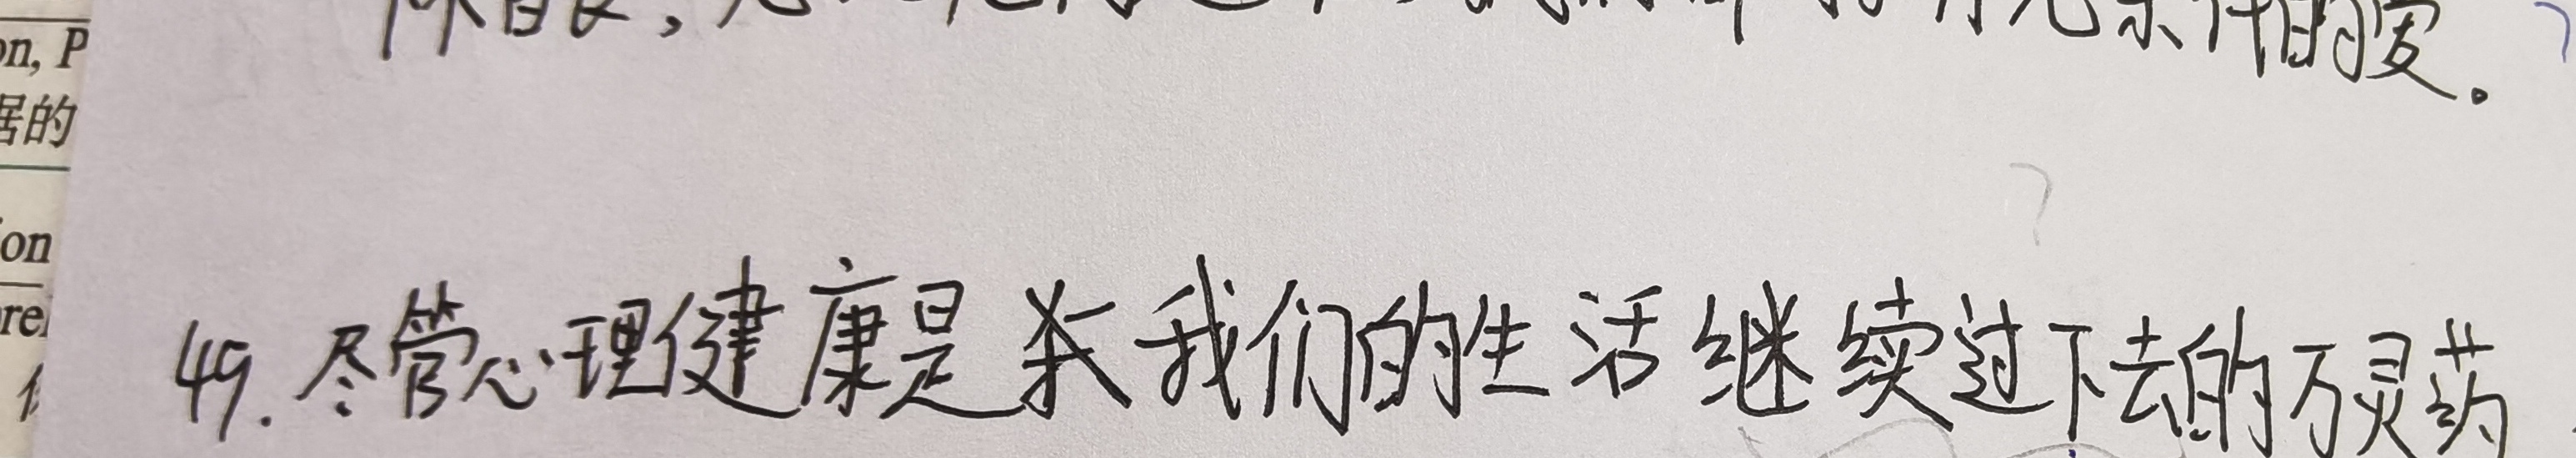 on, P
居的
on
rel
条件的爱。
49. 尽管心理健康是我们的生活继续过下去的万灵药